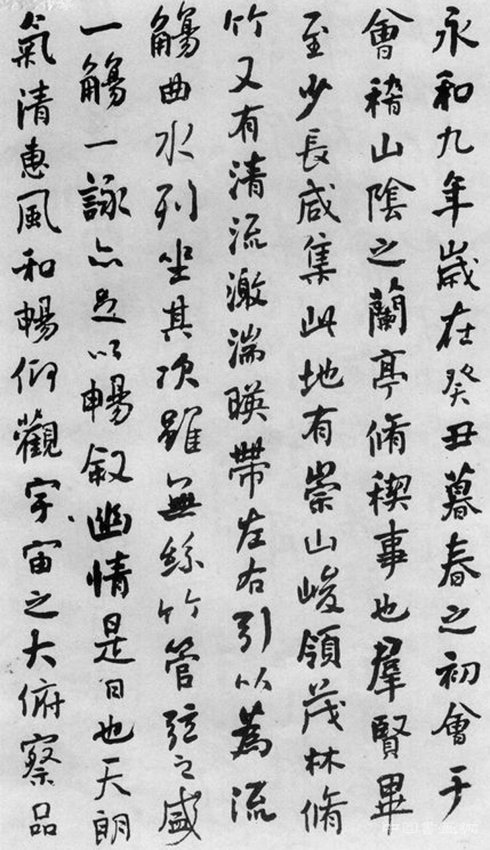 永和九年歲在癸丑暮春之初會于
會稽山陰之蘭亭脩稧事也羣賢畢
至少長咸集此地有崇山峻領茂林脩
竹又有清流激湍暎帶左右引以為流
觴曲水列坐其次雖無絲竹管弦之盛
一觴一詠亦足以暢敘幽情是日也天朗
氣清惠風和暢仰觀宇宙之大俯察品